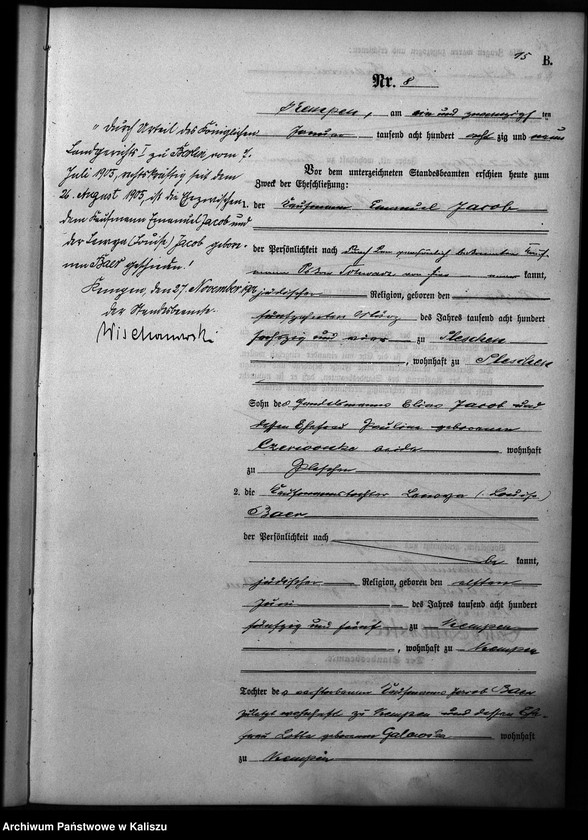 15
B.
Nr. 8
Kempen, am ein und zwanzigsten
Januar tausend acht hundert acht zig und neun
Vor dem unterzeichneten Standesbeamten erschien heute zum
Zweck der Eheschließung:
1. der Kaufmann Emanuel Jacob
der Persönlichkeit nach durch den persönlich bekannten Kauf-
mann von hier kannt,
jüdischer Religion, geboren den
fünfzehnten März des Jahres tausend acht hundert
sechszig und vier zu Pleschen
, wohnhaft zu Pleschen
Sohn des Handelsmanns Elias Jacob und
dessen Ehefrau Pauline geborenen
beide wohnhaft
zu Pleschen
2. die Kaufmannstochter Lewga (: Louise)
Baer
der Persönlichkeit nach
be kannt,
jüdischer Religion, geboren den elften
Juni des Jahres tausend acht hundert
fünfzig und fünf zu Kempen
, wohnhaft zu Kempen
Tochter des verstorbenen Kaufmanns Jacob Baer
zuletzt wohnhaft zu Kempen und dessen Ehe-
frau Lotte geborenen wohnhaft
zu Kempen
„Durch Urteil des Königlichen
Landgerichts I zu Berlin, vom 7.
Juli 1905, rechtskräftig seit dem
26. August 1905, ist die Ehe zwischen
dem Kaufmann Emanuel Jacob und
der Lewga (Louise) Jacob gebore-
nen Baer geschieden.
Kempen, den 27. November
der Standesbeamte.
Wischanowski
Archiwum Państwowe w Kaliszu